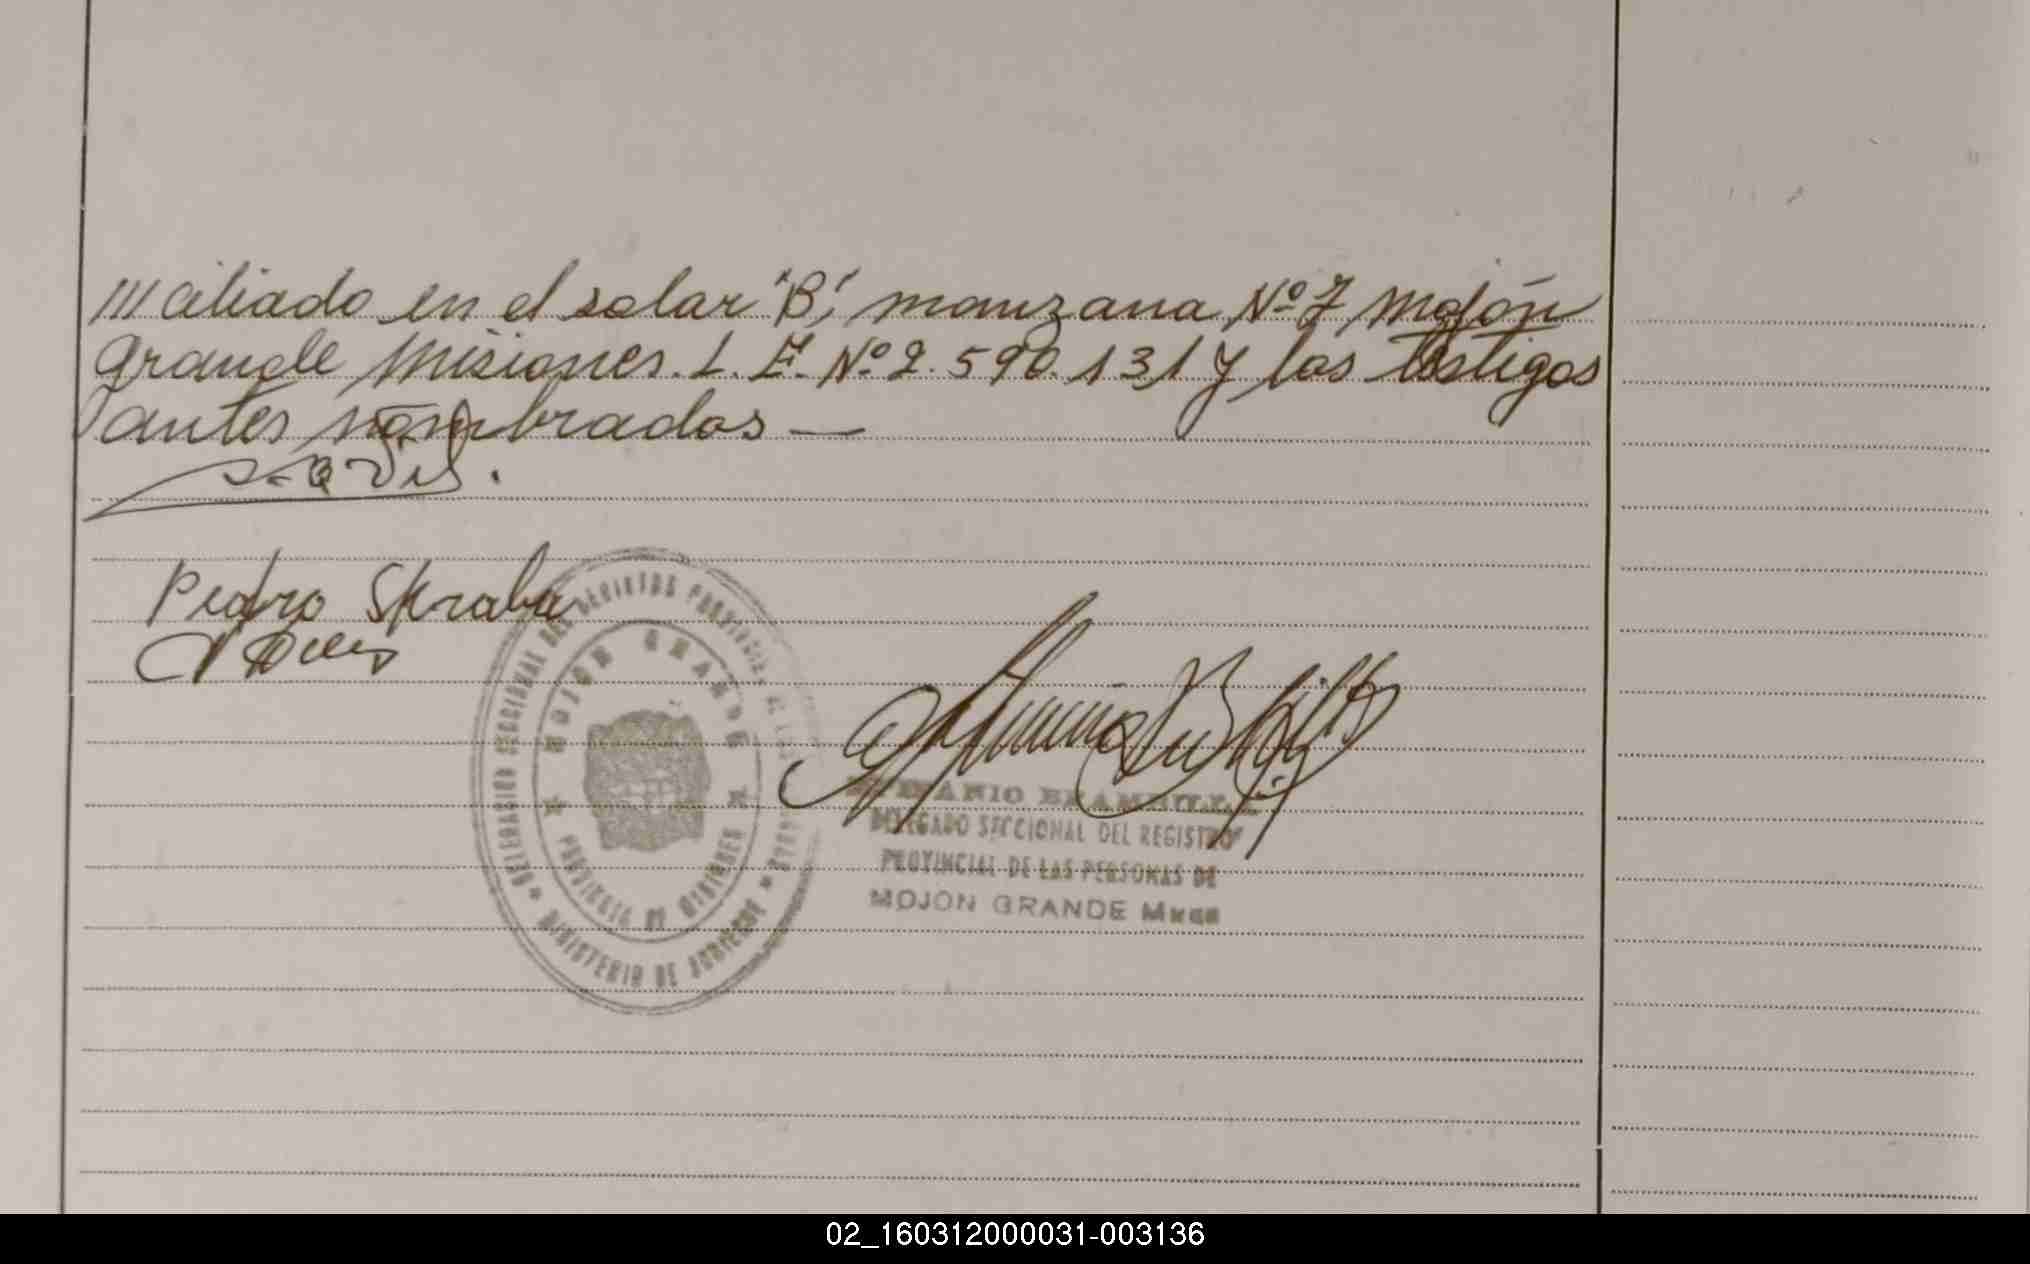 ///ciliado en el solar "B", manzana Nº 7 Mojón
Grande Misiones. L. E. Nº 2.590.131 y los testigos
antes nombrados —
Pedro Skraba
DELEGACION SECCIONAL DEL REGISTRO PROVINCIAL DE LAS PERSONAS
MOJON GRANDE
PROVINCIA DE MISIONES
MINISTERIO DE GOBIERNO
DELEGADO SECCIONAL DEL REGISTRO
PROVINCIAL DE LAS PERSONAS DE
MOJON GRANDE Mnes
02_160312000031-003136